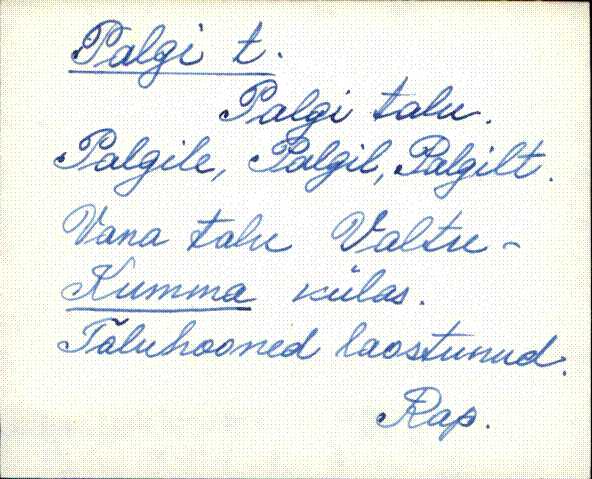 Palgi t.
Palgi talu.
Palgile, Palgil, Palgilt.
Vana talu Valtu-
Kumma külas.
Taluhooned laostunud.
Rap.